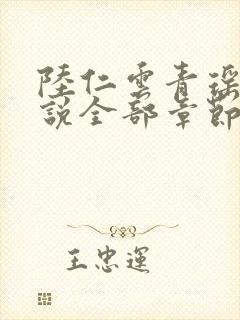 陸仁雲青瑶
說全部章節
王忠運